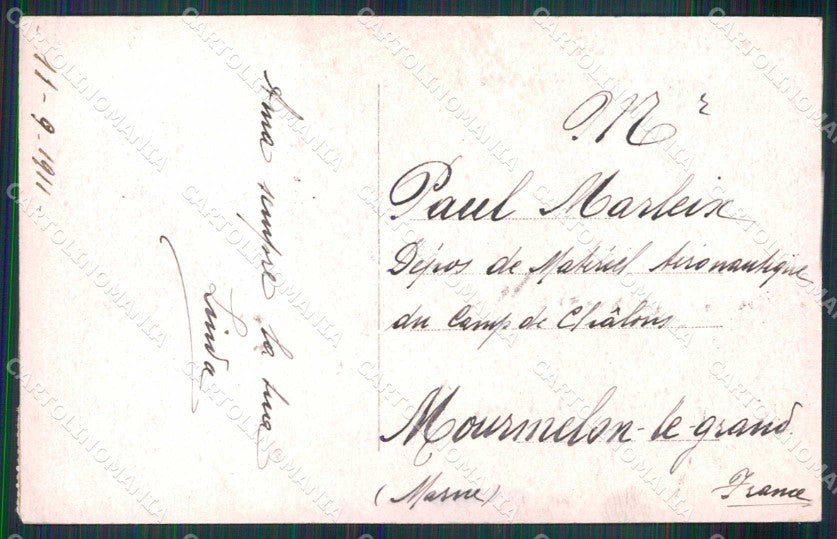 11-9-1911
Ama sempre la tua
Linda
Mr
Paul Marleix
Dépos de Matériel Aéronautique
du Camp de Châlons
Mourmelon-le-grand
(Marne)
France
CARTOLINOMANIA